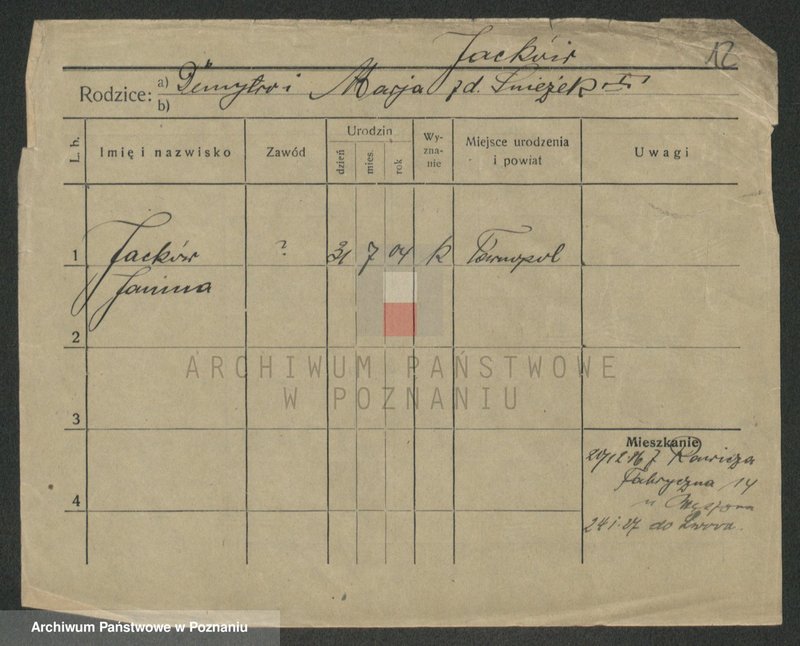 Jacków
12
Rodzice: a) Dmytro i Marja zd. Śnieżek
b)
L. b. Imię i nazwisko Zawód Urodzin dzień mies. rok Wyznanie Miejsce urodzenia i powiat Uwagi
1 Jacków ? 31 7 04 k Tarnopol
Janina
2
ARCHIWUM PAŃSTWOWE
W POZNANIU
3
Mieszkanie
20/12 26 z Rawicza
Fabryczna 14
u
24.1.27 do Lwowa.
4
Archiwum Państwowe w Poznaniu